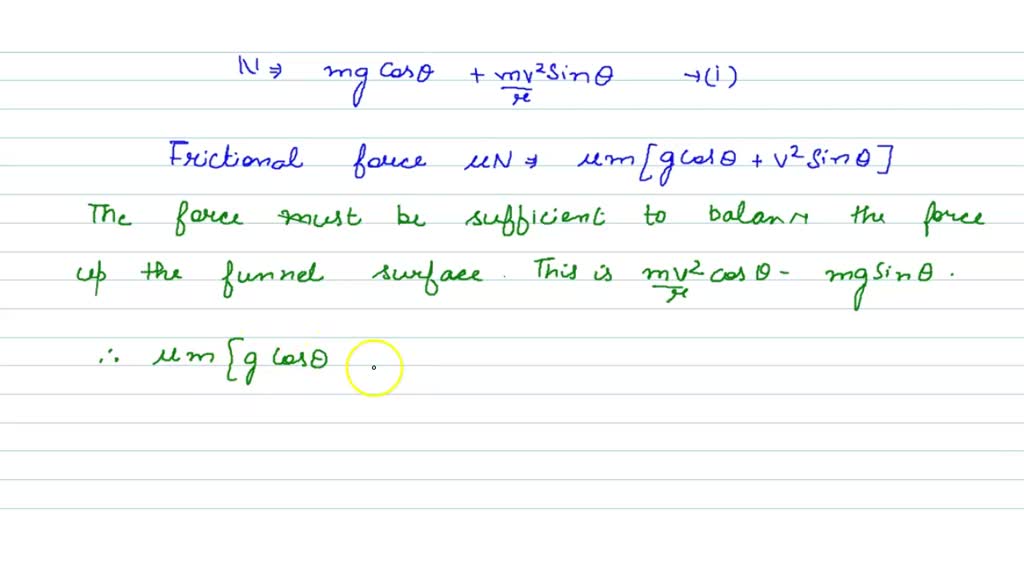 N ⇒ mg cosθ + mv²/r sinθ → (i)
Frictional force μN ⇒ μm[g cosθ + v² sinθ]
The force must be sufficient to balan the force
up the funnel surface. This is mv²/r cosθ - mg sinθ.
∴ μm[g cosθ